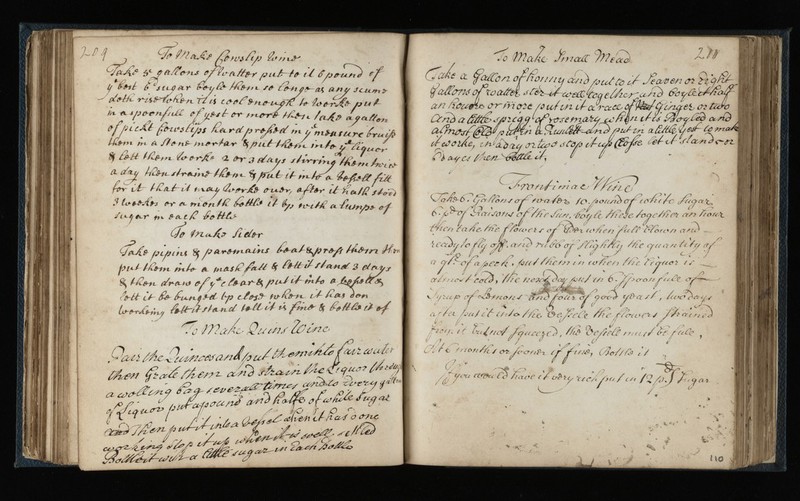 204
To Make Cowslip Wine
Take 5 gallons of Watter put to it 6 pound of
ye best sugar boyle them so longe as any scume
doth rise when it is cool enough to worke put
in a spoonfull of yest or more then take a gallon
of pickt Cowslips hard pressed in ye measure bruise
them in a stone mortar & put them into ye liquor
& lett them Worke 2 or 3 days stirring them twice
a day then straine them & put it into a vessell fill
for it that it may worke over, after it hath stood
3 weekes or a month bottle it up with a lumpe of
sugar in each bottle
To make Sider
Take pipins & paremains beat & press them then
put them into a mash fatt & lett it stand 3 days
& then draw of ye clear & put it into a vessell &
lett it be bunged up close when it has don
working lett it stand tell it is fine & bottle it of
To Make Quins Wine
Pair the Quinces and put them into fair water
then Grate them and strain the Liquor through
a wolling bag severall times and to every gallon
of Liquor put a pound and halfe of white Sugar
and Then put it into a vessel when it has done
working stop it up when it is well settled
Bottle it with a little sugar in Each Bottle
211
To Make Small Mead
Take a Gallon of honny and put to it Seaven or Eight
gallons of watter ster it well together and boyle it half
an houre or more put in it a race of Ginger or two
And a little sprigg of rosemary when it is Boyled and
almost Cold put it in a Runlett and put in a little yest to make
it worke, in a day or two stop it up Close let it stand 5 or
6 dayes then bottle it.
Frontimac Wine
Take 6 Gallons of water 12 pound of white Sugar
6 pd of Raisons of the Sun, boyle these together an hour
then take the flowers of Elder when full blown and
ready to fly off, and rubb off slightly the quantity of
a qtr of a peck, put them in when the liquor is
almost cold, the next day put in 6 Spoonfulls of
Syrup of Lemons and four of good yeast, two days
after put it into the Vessele the flowers strained
from it but not squeezed, the Vessele must be full,
At 6 months or sooner if fine, Bottle it
If you would have it very rich put in 12 pd of Sugar
110